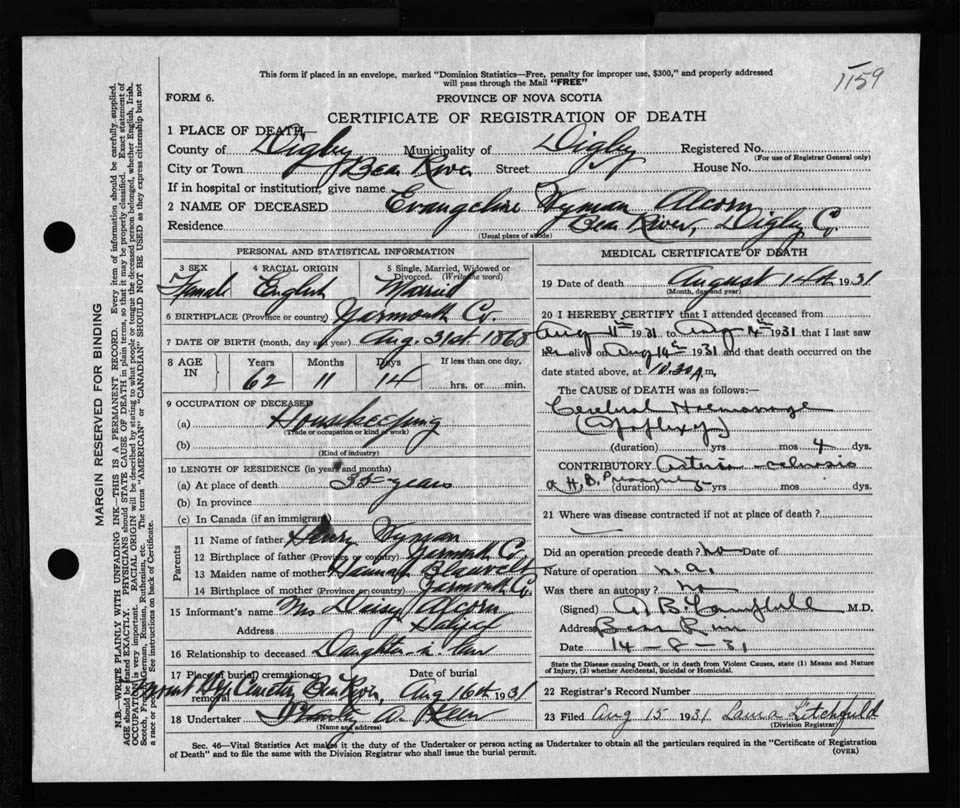 1159
This form if placed in an envelope, marked "Dominion Statistics—Free, penalty for improper use, $300," and properly addressed
will pass through the Mail "FREE"
FORM 6.
PROVINCE OF NOVA SCOTIA
CERTIFICATE OF REGISTRATION OF DEATH
1 PLACE OF DEATH—
County of Digby Municipality of Digby Registered No.
(For use of Registrar General only)
City or Town Bear River Street House No.
If in hospital or institution, give name
2 NAME OF DECEASED Evangeline Wyman Alcorn
Residence Bear River, Digby Co.
(Usual place of abode)
PERSONAL AND STATISTICAL INFORMATION
3 SEX 4 RACIAL ORIGIN 5 Single, Married, Widowed or
Divorced. (Write the word)
Female English Married
6 BIRTHPLACE (Province or country) Yarmouth Co.
7 DATE OF BIRTH (month, day and year) Aug. 31st. 1868
8 AGE IN Years Months Days If less than one day,
62 11 14 hrs. or min.
9 OCCUPATION OF DECEASED
(a) Housekeeping
(Trade or occupation or kind of work)
(b)
(Kind of industry)
10 LENGTH OF RESIDENCE (in years and months)
(a) At place of death 35 years
(b) In province
(c) In Canada (if an immigrant)
Parents
11 Name of father Henry Wyman
12 Birthplace of father (Province or country) Yarmouth Co.
13 Maiden name of mother Hannah Blauvelt
14 Birthplace of mother (Province or country) Yarmouth Co.
15 Informant's name Mrs Daisy Alcorn
Address Halifax
16 Relationship to deceased Daughter-in-law
17 Place of burial cremation or Date of burial
removal Mount Hope Cemetery Bear River, Aug 16th 1931
18 Undertaker A.
(Name and address)
MEDICAL CERTIFICATE OF DEATH
19 Date of death August 14th 1931
(Month, day and year)
20 I HEREBY CERTIFY that I attended deceased from
Aug 11th 1931 to Aug 14th 1931 that I last saw
her alive on Aug 14th 1931 and that death occurred on the
date stated above, at 10.30 A m,
The CAUSE of DEATH was as follows:—
Cerebral Haemorrage
(Apoplexy)
(duration) yrs mos 4 dys.
CONTRIBUTORY Arterio-sclerosis
& H. B. Pressure (duration) 5 yrs mos dys.
21 Where was disease contracted if not at place of death?
Did an operation precede death? no Date of
Nature of operation n.a.
Was there an autopsy? no
(Signed) A. B. Campbell M.D.
Address Bear River
Date 14-8-31
State the Disease causing Death, or in death from Violent Causes, state (1) Means and Nature
of Injury, (2) whether Accidental, Suicidal or Homicidal.
22 Registrar's Record Number
23 Filed Aug 15 1931 Laura Litchfield
(Division Registrar)
Sec. 46—Vital Statistics Act makes it the duty of the Undertaker or person acting as Undertaker to obtain all the particulars required in the "Certificate of Registration
of Death" and to file the same with the Division Registrar who shall issue the burial permit. (OVER)
MARGIN RESERVED FOR BINDING
N.B.—WRITE PLAINLY WITH UNFADING INK—THIS IS A PERMANENT RECORD. Every item of information should be carefully supplied.
AGE should be stated EXACTLY. PHYSICIANS should STATE CAUSE OF DEATH in plain terms, so that it may be properly classified. Exact statement of
OCCUPATION is very important. RACIAL ORIGIN will be described by stating to what people or tongue the deceased person belonged, whether English, Irish,
Scotch, French, German, Russian, Ruthenian, etc. The terms "AMERICAN" or "CANADIAN" SHOULD NOT BE USED as they express citizenship but not
a race or people. See instructions on back of Certificate.